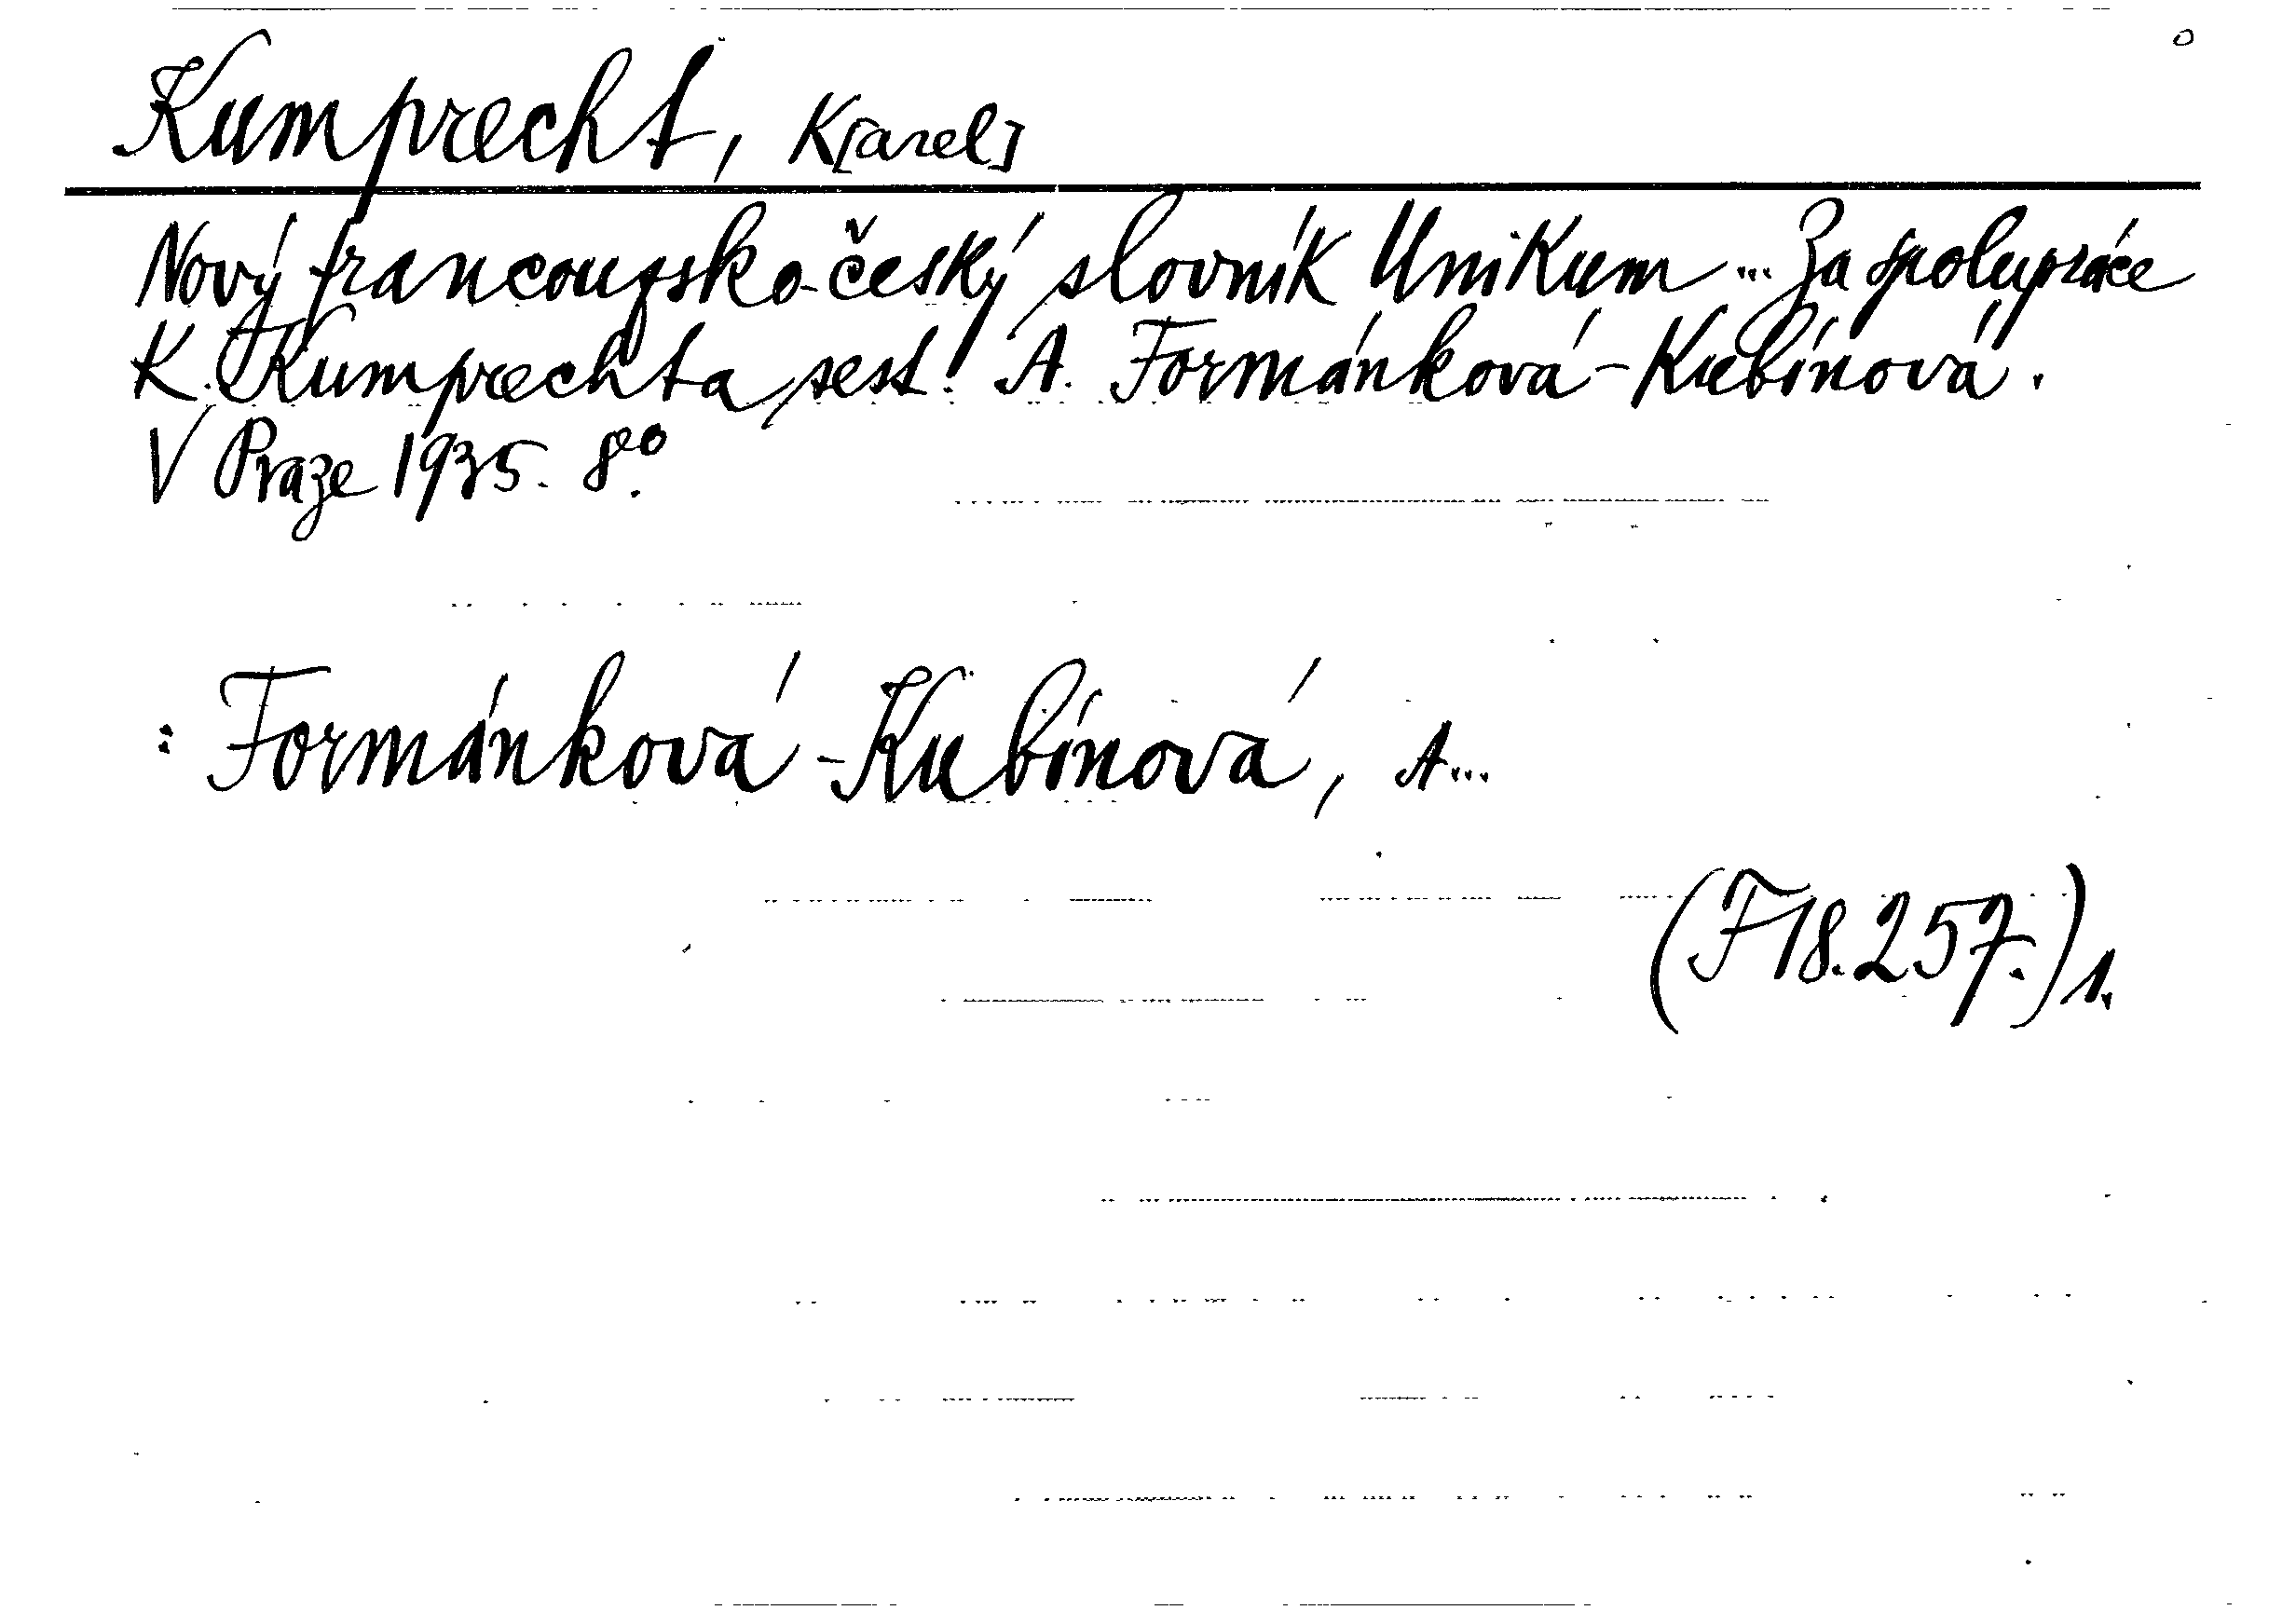 Kumprecht, K[arel]
Nový francouzsko-český slovník Unikum ... Za spolupráce
K. Kumprechta sest. A. Formánková-Kubínová.
V Praze 1935. 8°.
: Formánková-Kubínová, A...
(F 18.257.) 1.